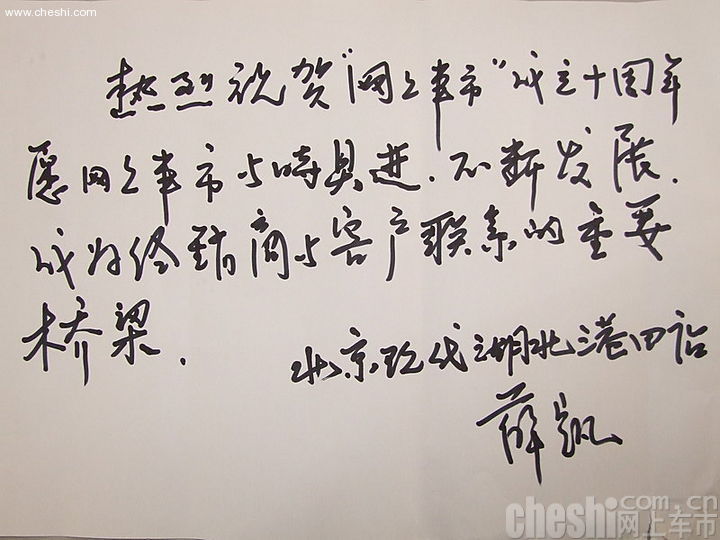 www.cheshi.com
热烈祝贺"网上车市"成立十周年
愿网上车市与時具进.不断发展.
成为经銷商与客户联系的重要
桥梁.
北京现代湖北港田店
薛凯
cheshi.com.cn
网上车市